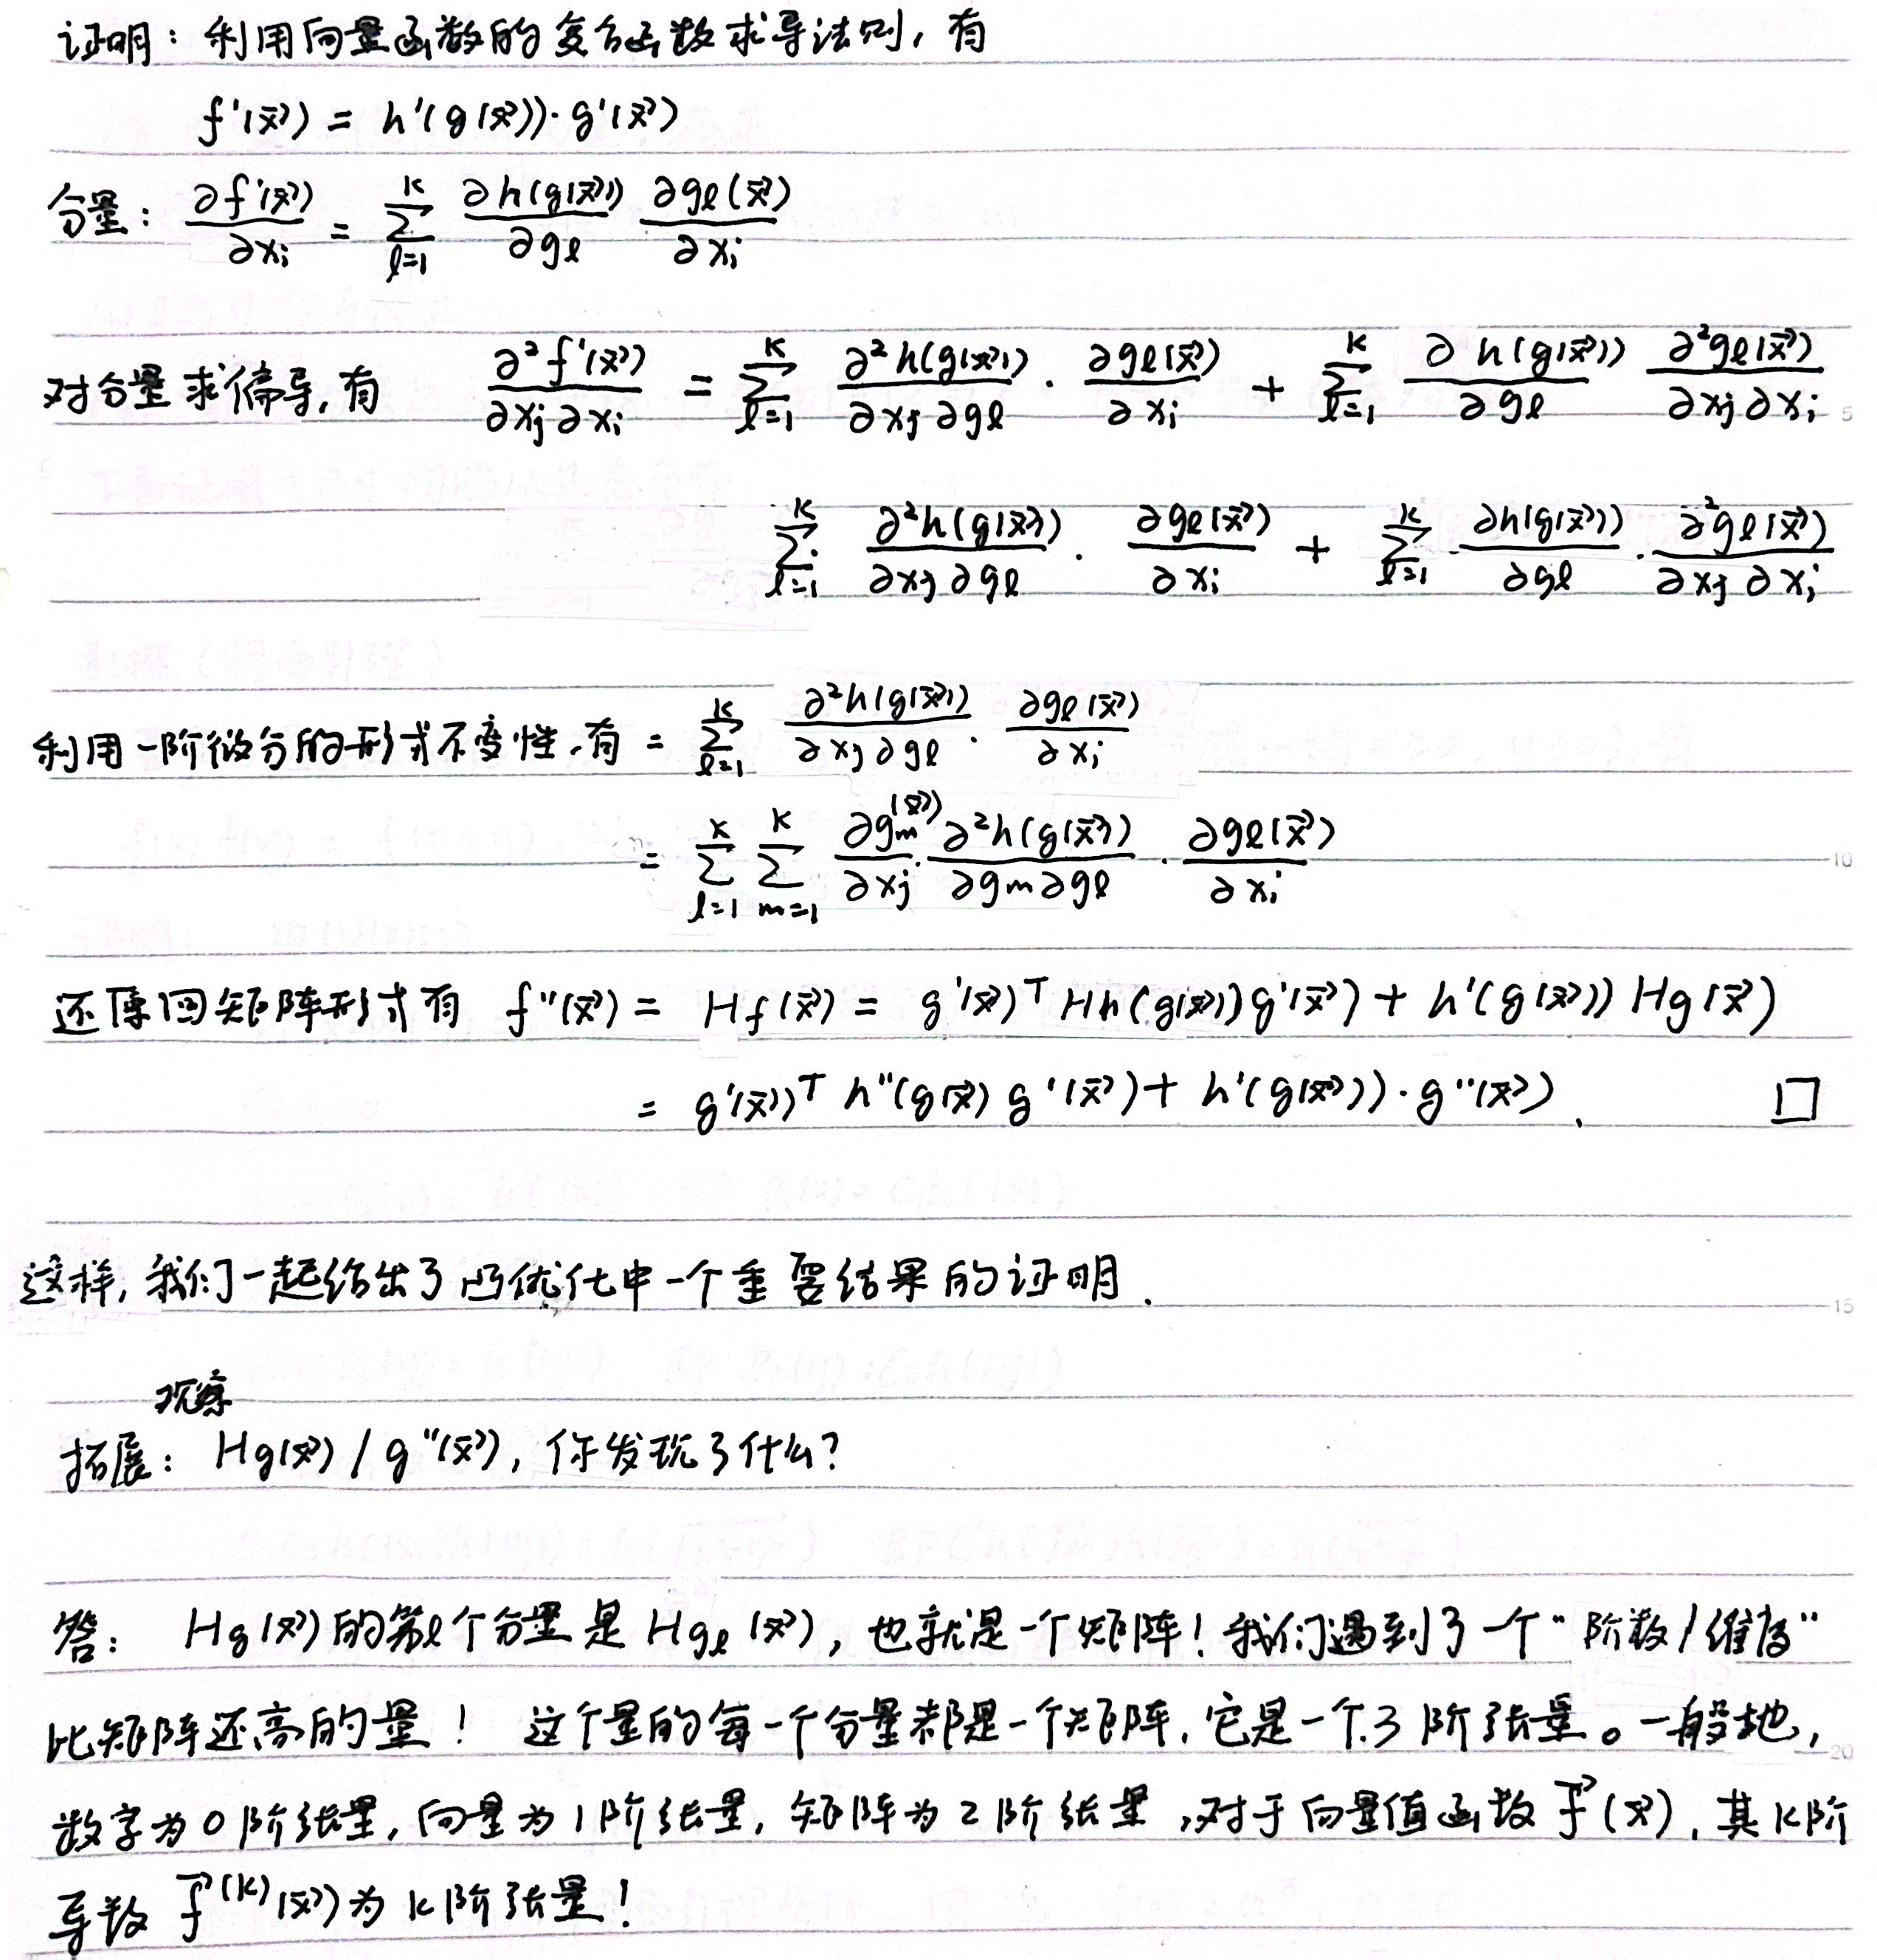 证明：利用向量函数的复合函数求导法则，有
f'(x⃗) = h'(g(x⃗))·g'(x⃗)
分量：∂f'(x⃗)/∂xᵢ = ∑_{l=1}^{K} ∂h(g(x⃗))/∂g_l ∂g_l(x⃗)/∂xᵢ
对分量求偏导，有 ∂²f'(x⃗)/∂xⱼ∂xᵢ = ∑_{l=1}^{K} ∂²h(g(x⃗))/∂xⱼ∂g_l · ∂g_l(x⃗)/∂xᵢ + ∑_{l=1}^{K} ∂h(g(x⃗))/∂g_l ∂²g_l(x⃗)/∂xⱼ∂xᵢ
∑_{l=1}^{K} ∂²h(g(x⃗))/∂xⱼ∂g_l · ∂g_l(x⃗)/∂xᵢ + ∑_{l=1}^{K} ∂h(g(x⃗))/∂g_l · ∂²g_l(x⃗)/∂xⱼ∂xᵢ
利用一阶微分的形式不变性，有 = ∑_{l=1}^{K} ∂²h(g(x⃗))/∂xⱼ∂g_l · ∂g_l(x⃗)/∂xᵢ
= ∑_{l=1}^{K} ∑_{m=1}^{K} ∂g_m(x⃗)/∂xⱼ · ∂²h(g(x⃗))/∂g_m∂g_l · ∂g_l(x⃗)/∂xᵢ
还原回矩阵形式有 f''(x⃗) = Hf(x⃗) = g'(x⃗)ᵀ Hh(g(x⃗))g'(x⃗) + h'(g(x⃗)) Hg(x⃗)
= g'(x⃗)ᵀ h''(g(x⃗) g'(x⃗) + h'(g(x⃗))·g''(x⃗). □
这样，我们一起给出了凸优化中一个重要结果的证明.
观察
拓展：Hg(x⃗) / g''(x⃗)，你发现了什么？
答： Hg(x⃗)的第l个分量是Hg_l(x⃗)，也就是一个矩阵！我们遇到了一个“阶数/维度”
比矩阵还高的量！ 这个量的每一个分量都是一个矩阵，它是一个3阶张量。一般地，
数字为0阶张量，向量为1阶张量，矩阵为2阶张量，对于向量值函数f⃗(x⃗)，其k阶
导数f⃗⁽ᵏ⁾(x⃗)为k阶张量！
5
10
15
20